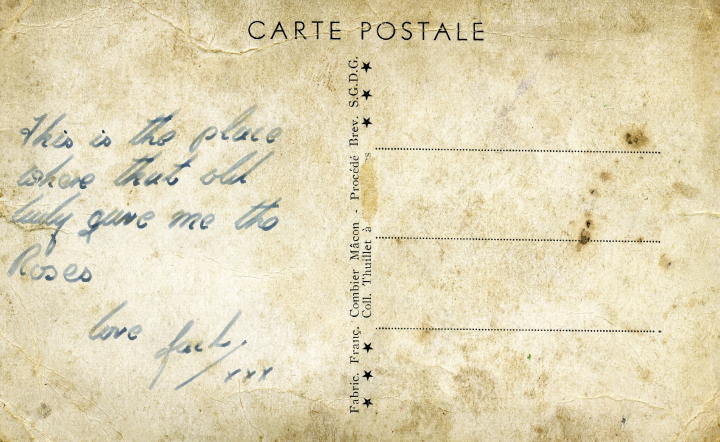 CARTE POSTALE
This is the place
where that old
lady gave me the
Roses
love
xxx
Fabric. Franç. Combier Mâcon - Procédé Brev. S.G.D.G.
Coll. Thuillet à
s